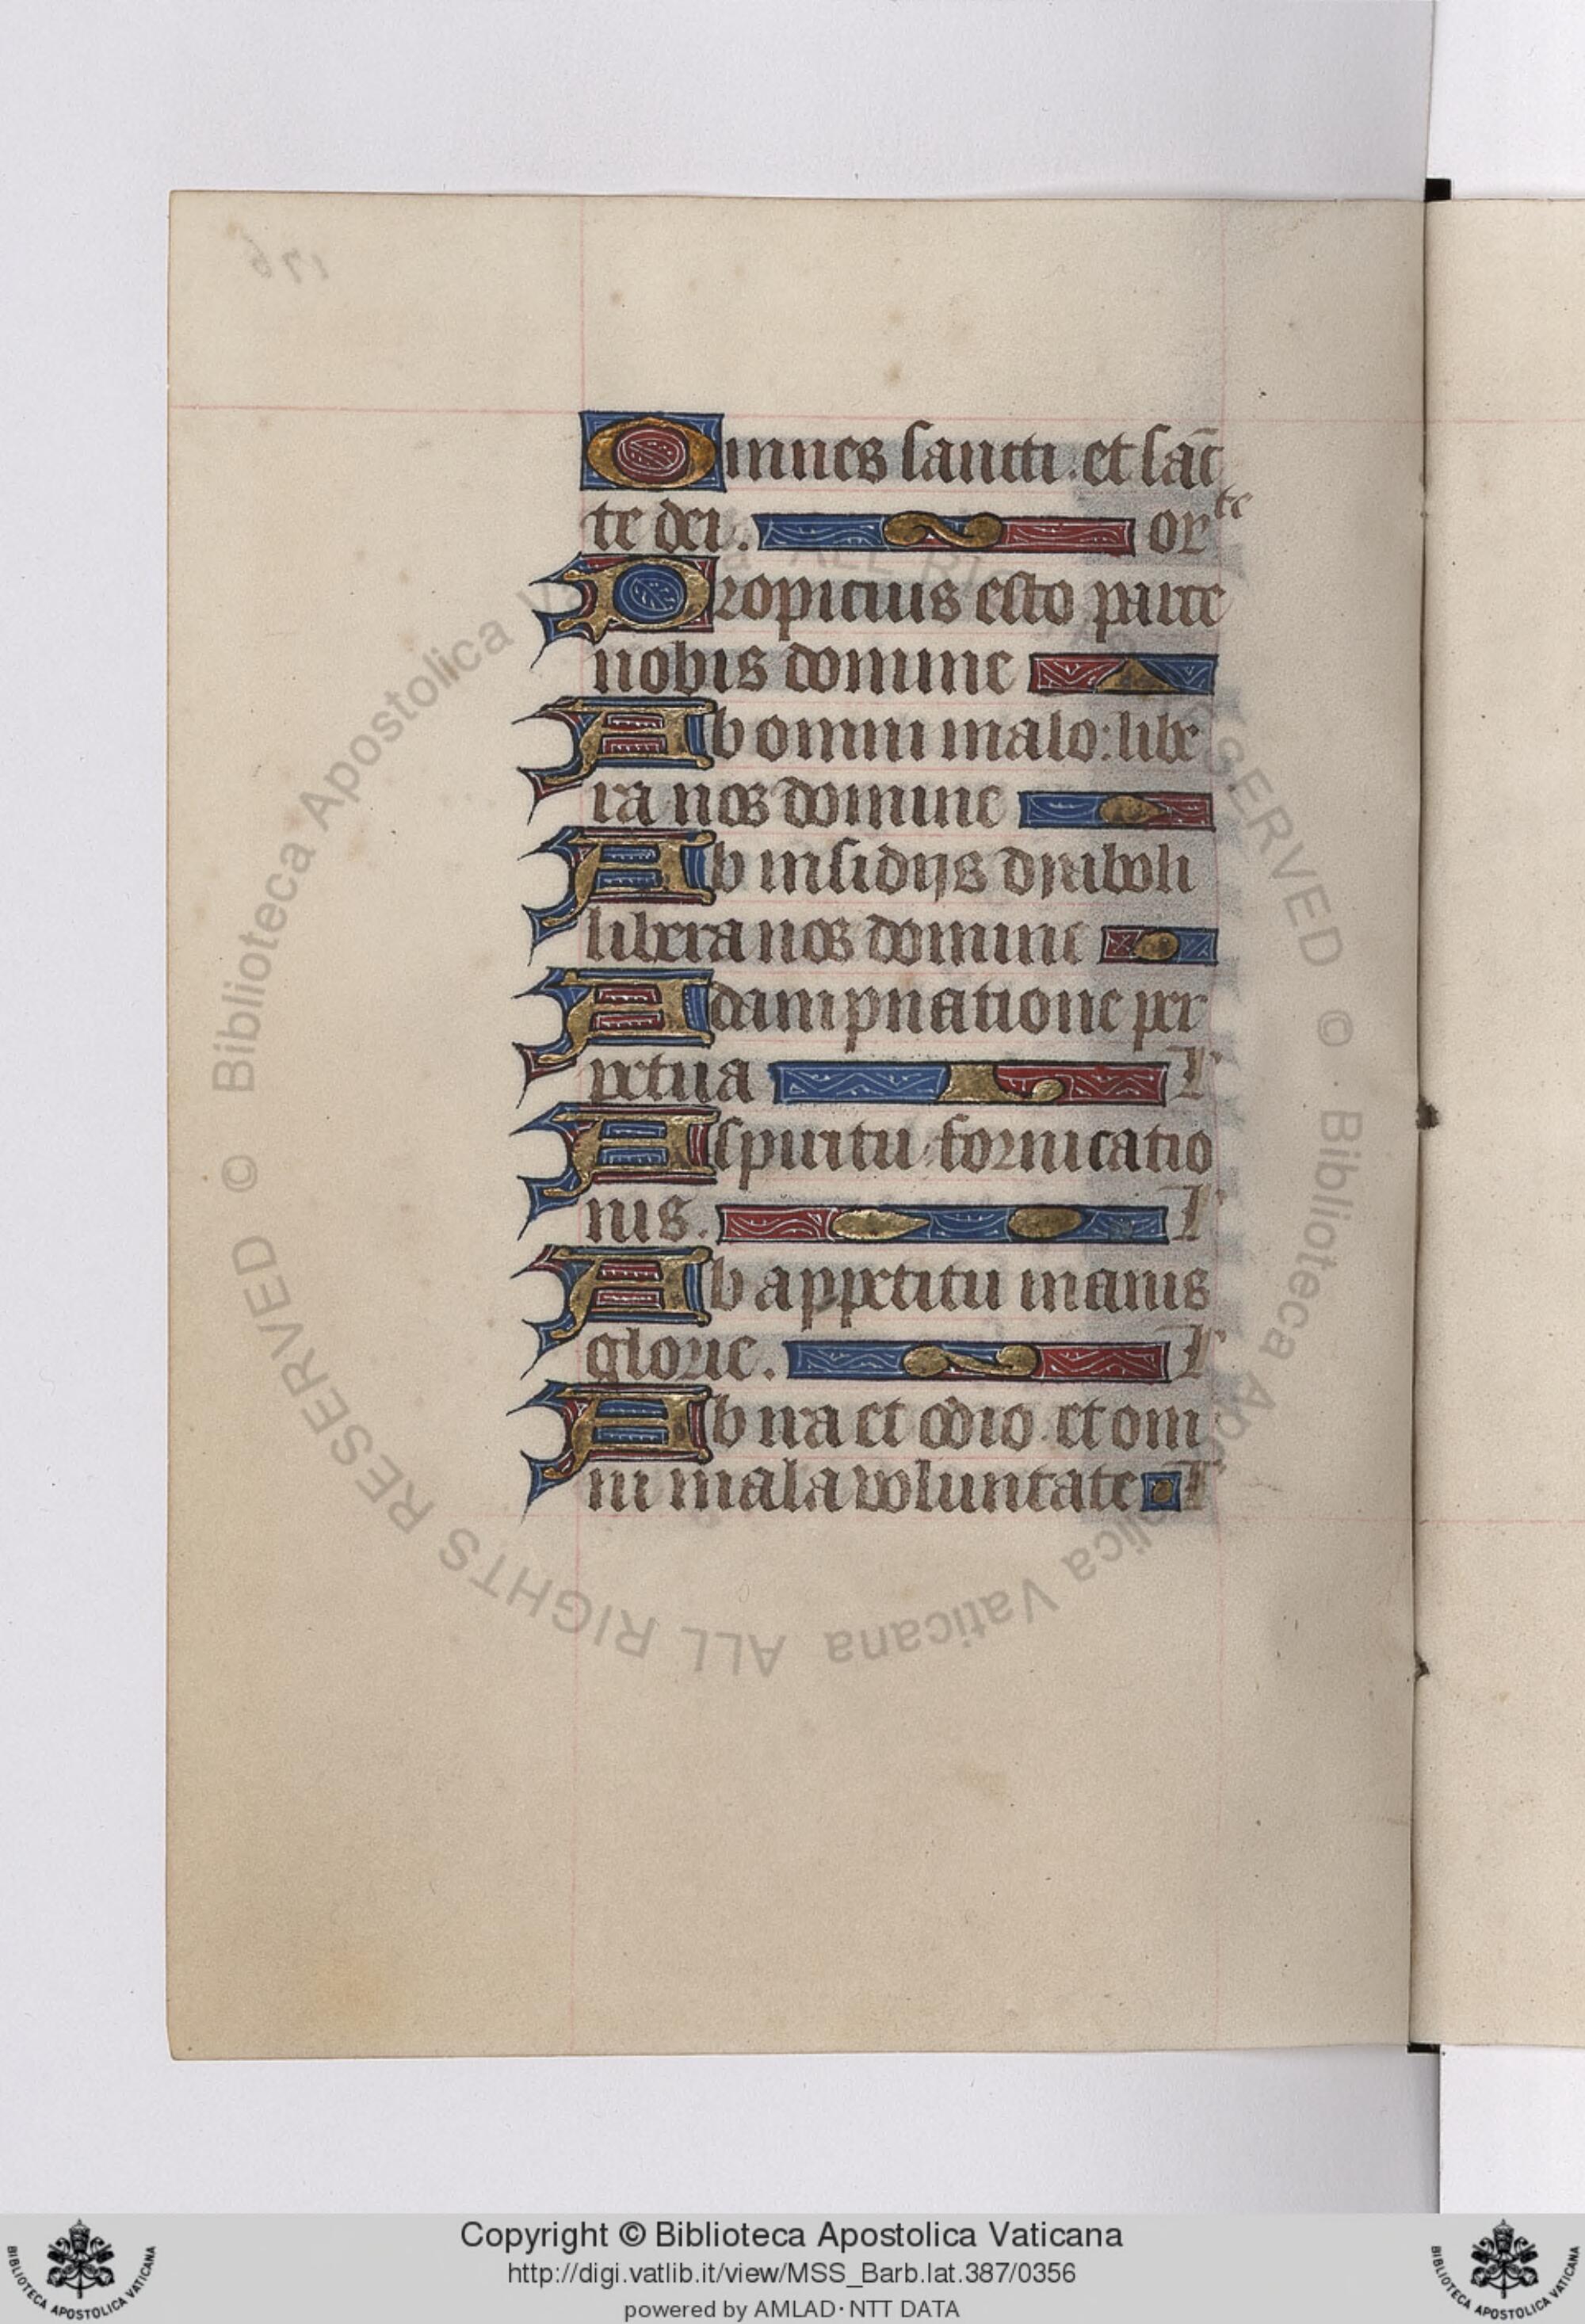 Omnes sancti. et sāc
te dei. or^te
Propicius esto parce
nobis domine
Ab omni malo: libe
ra nos domine
Ab insidijs dyaboli
libera nos domine
A dampnatione per
petua L
A spiritu fornicatio
nis. L
Ab appetitu inanis
glorie. L
Ab ira et odio. et om
ni mala voluntate L
176
© Biblioteca Apostolica Vaticana ALL RIGHTS RESERVED
© Biblioteca Apostolica Vaticana ALL RIGHTS RESERVED
Copyright © Biblioteca Apostolica Vaticana
http://digi.vatlib.it/view/MSS_Barb.lat.387/0356
powered by AMLAD·NTT DATA
BIBLIOTECA APOSTOLICA VATICANA
BIBLIOTECA APOSTOLICA VATICANA